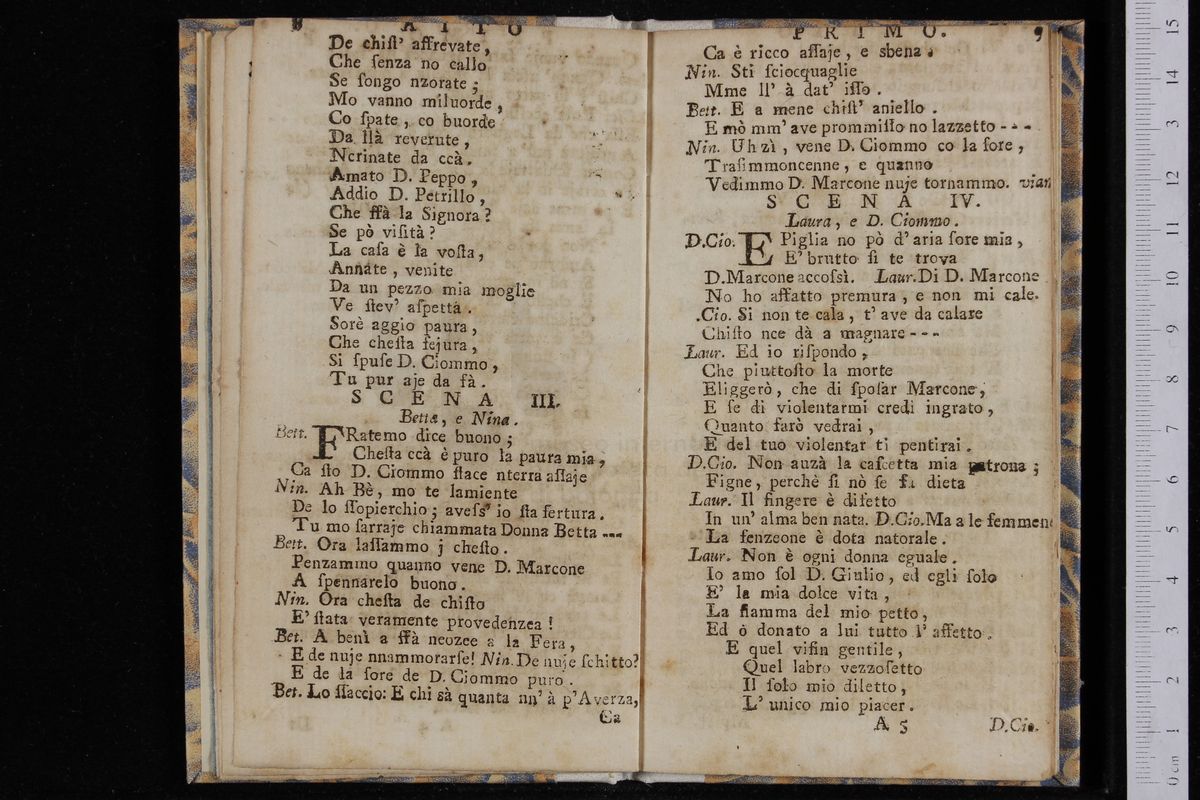 8 A T T O
De chiſt' affrevate,
Che ſenza no callo
Se ſongo nzorate;
Mo vanno miluorde,
Co ſpate, co buorde
Da llà reverute,
Ncrinate da ccà.
Amato D. Peppo,
Addio D. Petrillo,
Che ffà la Signora?
Se pò viſità?
La caſa è la voſta,
Annate, venite
Da un pezzo mia moglie
Ve ſtev' aſpettà.
Sorè aggio paura,
Che cheſta ſejura,
Si ſpuſe D. Ciommo,
Tu pur aje da fà.
S C E N A III.
Betta, e Nina.
Bett. FRatemo dice buono;
Cheſta ccà è puro la paura mia,
Ca ſto D. Ciommo ſtace nterra aſſaje
Nin. Ah Bè, mo te lamiente
De lo ſſopierchio; aveſs' io ſta fertura.
Tu mo ſarraje chiammata Donna Betta ---
Bett. Ora laſſammo j cheſto.
Penzammo quanno vene D. Marcone
A ſpennarelo buono.
Nin. Ora cheſta de chiſto
E' ſtata veramente provedenzea!
Bet. A benì a ffà neozee a la Fera,
E de nuje nnammorarſe! Nin. De nuje ſchitto?
E de la ſore de D. Ciommo puro.
Bet. Lo ſſaccio: E chi sà quanta nn' à p'Averza,
Ca
P R I M O. 9
Ca è ricco aſſaje, e sbena.
Nin. Sti ſciocquaglie
Mme ll' à dat' iſſo.
Bett. E a mene chiſt' aniello.
E mò mm' ave prommiſſo no lazzetto ---
Nin. Uh zì, vene D. Ciommo co la ſore,
Traſimmoncenne, e quanno
Vedimmo D. Marcone nuje tornammo. vian
S C E N A IV.
Laura, e D. Ciommo.
D.Cio. E Piglia no pò d' aria ſore mia,
E' brutto ſi te trova
D.Marcone accoſsì. Laur. Di D. Marcone
No ho affatto premura, e non mi cale.
.Cio. Si non te cala, t' ave da calare
Chiſto nce dà a magnare ---
Laur. Ed io riſpondo,
Che piuttoſto la morte
Eliggerò, che di ſpoſar Marcone,
E ſe di violentarmi credi ingrato,
Quanto farò vedrai,
E del tuo violentar ti pentirai.
D.Cio. Non auzà la caſcetta mia patrona;
Figne, perchè ſi nò ſe fa dieta
Laur. Il fingere è difetto
In un' alma ben nata. D.Cio. Ma a le femmene
La fenzeone è dota natorale.
Laur. Non è ogni donna eguale.
Io amo ſol D. Giulio, ed egli ſolo
E' la mia dolce vita,
La fiamma del mio petto,
Ed ò donato a lui tutto l' affetto.
E quel viſin gentile,
Quel labro vezzoſetto
Il ſolo mio diletto,
L' unico mio piacer.
A 5 D.Cio.